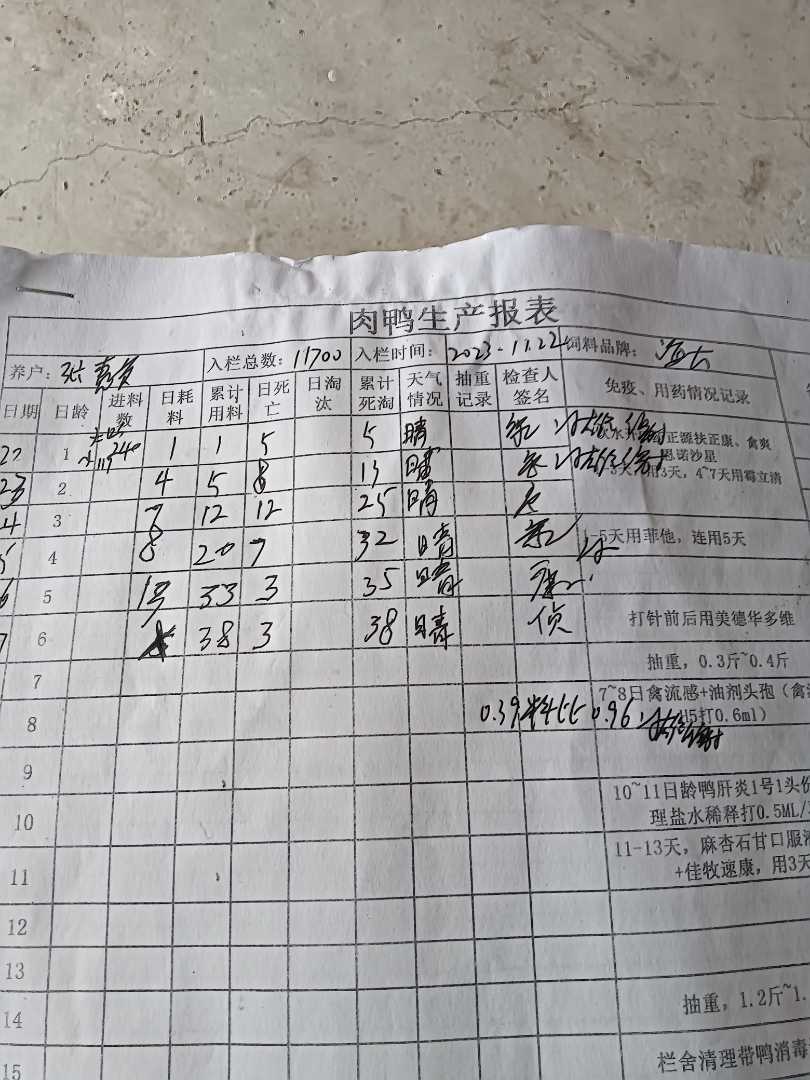 肉鸭生产报表
养户: 张 入栏总数: 11700 入栏时间: 2023-11.22 饲料品牌:
日期 日龄 进料数 日耗料 累计用料 日死亡 日淘汰 累计死淘 天气情况 抽重记录 检查人签名 免疫、用药情况记录
22 1 240 1 1 5 5 晴 正源扶正康、禽爽
恩诺沙星
23 2 4 5 8 13 晴 用3天, 4~7天用霉立清
4 3 7 12 12 25 晴
5 4 8 20 7 32 晴 5天用菲他, 连用5天
6 5 13 33 3 35 晴
7 6 38 3 38 晴 侦 打针前后用美德华多维
7 抽重, 0.3斤~0.4斤
8 0.39 料比 0.96 7~8日禽流感+油剂头孢(禽
H5打0.6ml)
9
10 10~11日龄鸭肝炎1号1头份
理盐水稀释打0.5ML/
11 11-13天, 麻杏石甘口服液
+佳牧速康, 用3天
12
13
14 抽重, 1.2斤~1.
15 栏舍清理带鸭消毒